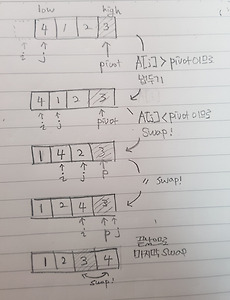 low high
4 1 2 3
i j pivot
A[j] > pivot이므로
냅두기
4 1 2 3
i j pivot
A[j] < pivot이므로
Swap!
1 4 2 3
i j p
" Swap!
1 2 4 3
i p j
마지막 Swap
1 2 3 4
swap!